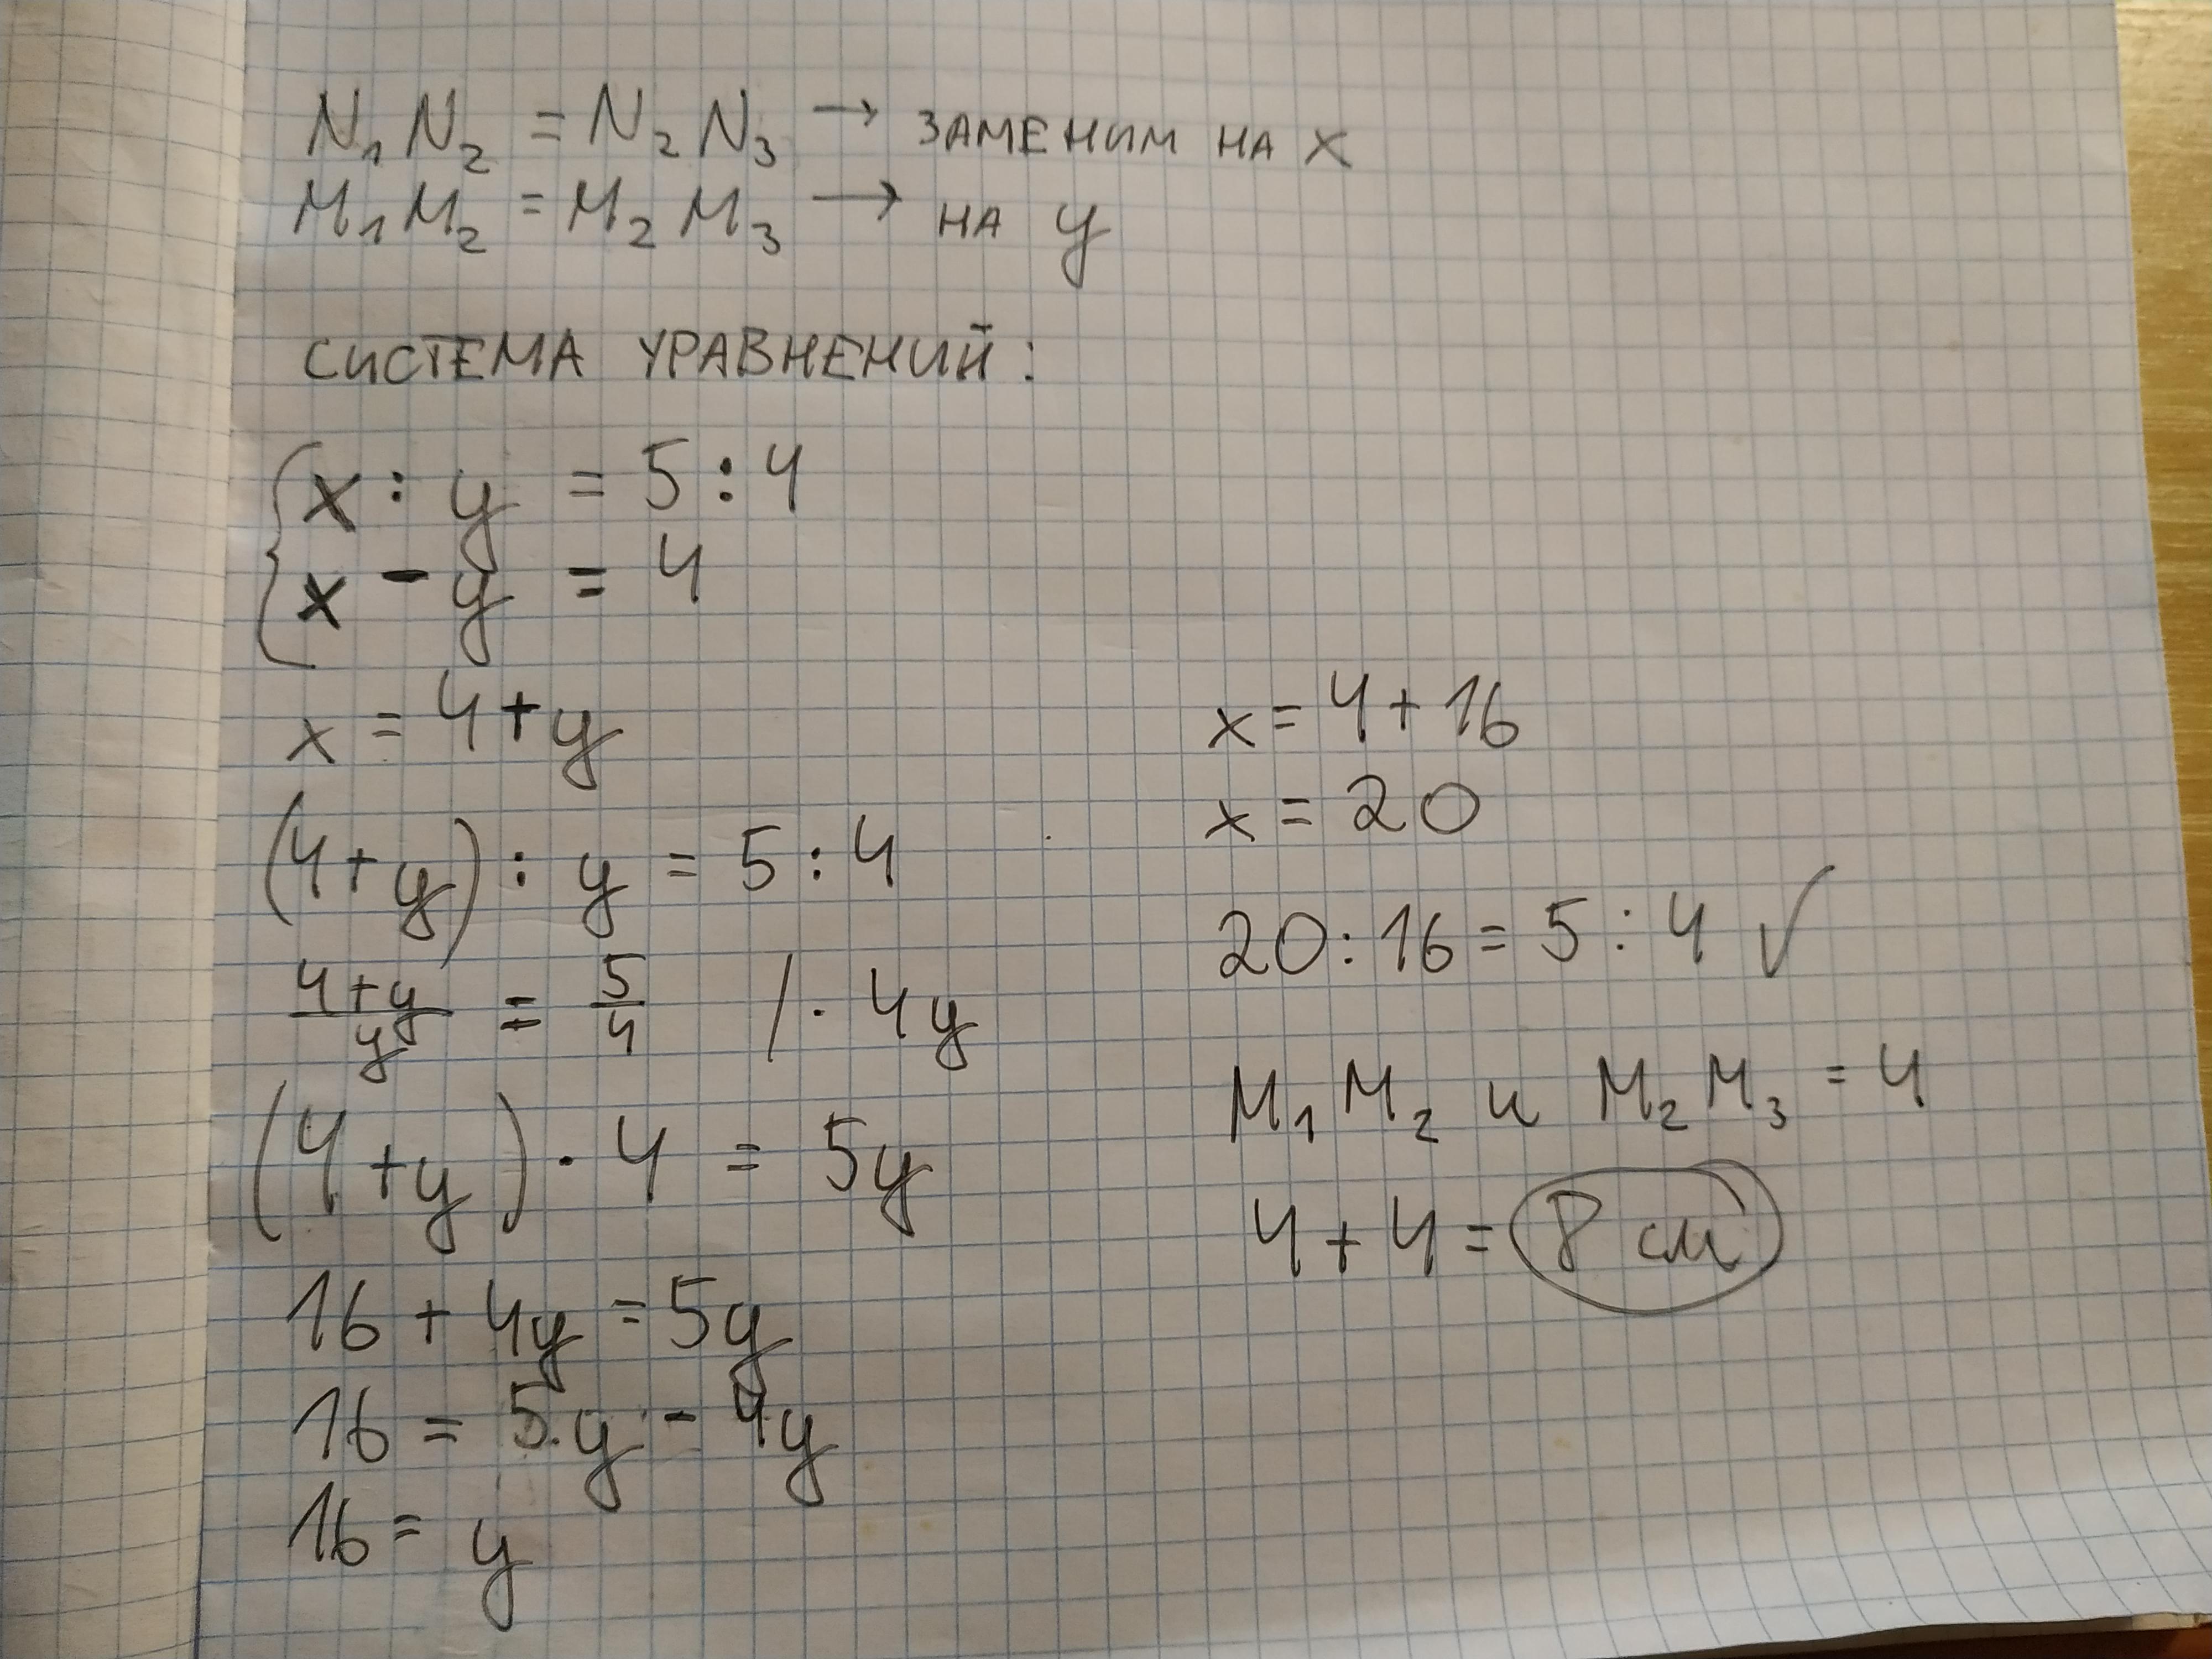 N₁N₂ = N₂N₃ → ЗАМЕНИМ НА x
M₁M₂ = M₂M₃ → НА y
СИСТЕМА УРАВНЕНИЙ:
{ x : y = 5 : 4
x - y = 4
x = 4 + y
(4 + y) : y = 5 : 4
(4+y)/y = 5/4 / · 4y
(4 + y) · 4 = 5y
16 + 4y = 5y
16 = 5y - 4y
16 = y
x = 4 + 16
x = 20
20 : 16 = 5 : 4 ✓
M₁M₂ и M₂M₃ = 4
4 + 4 = 8 см